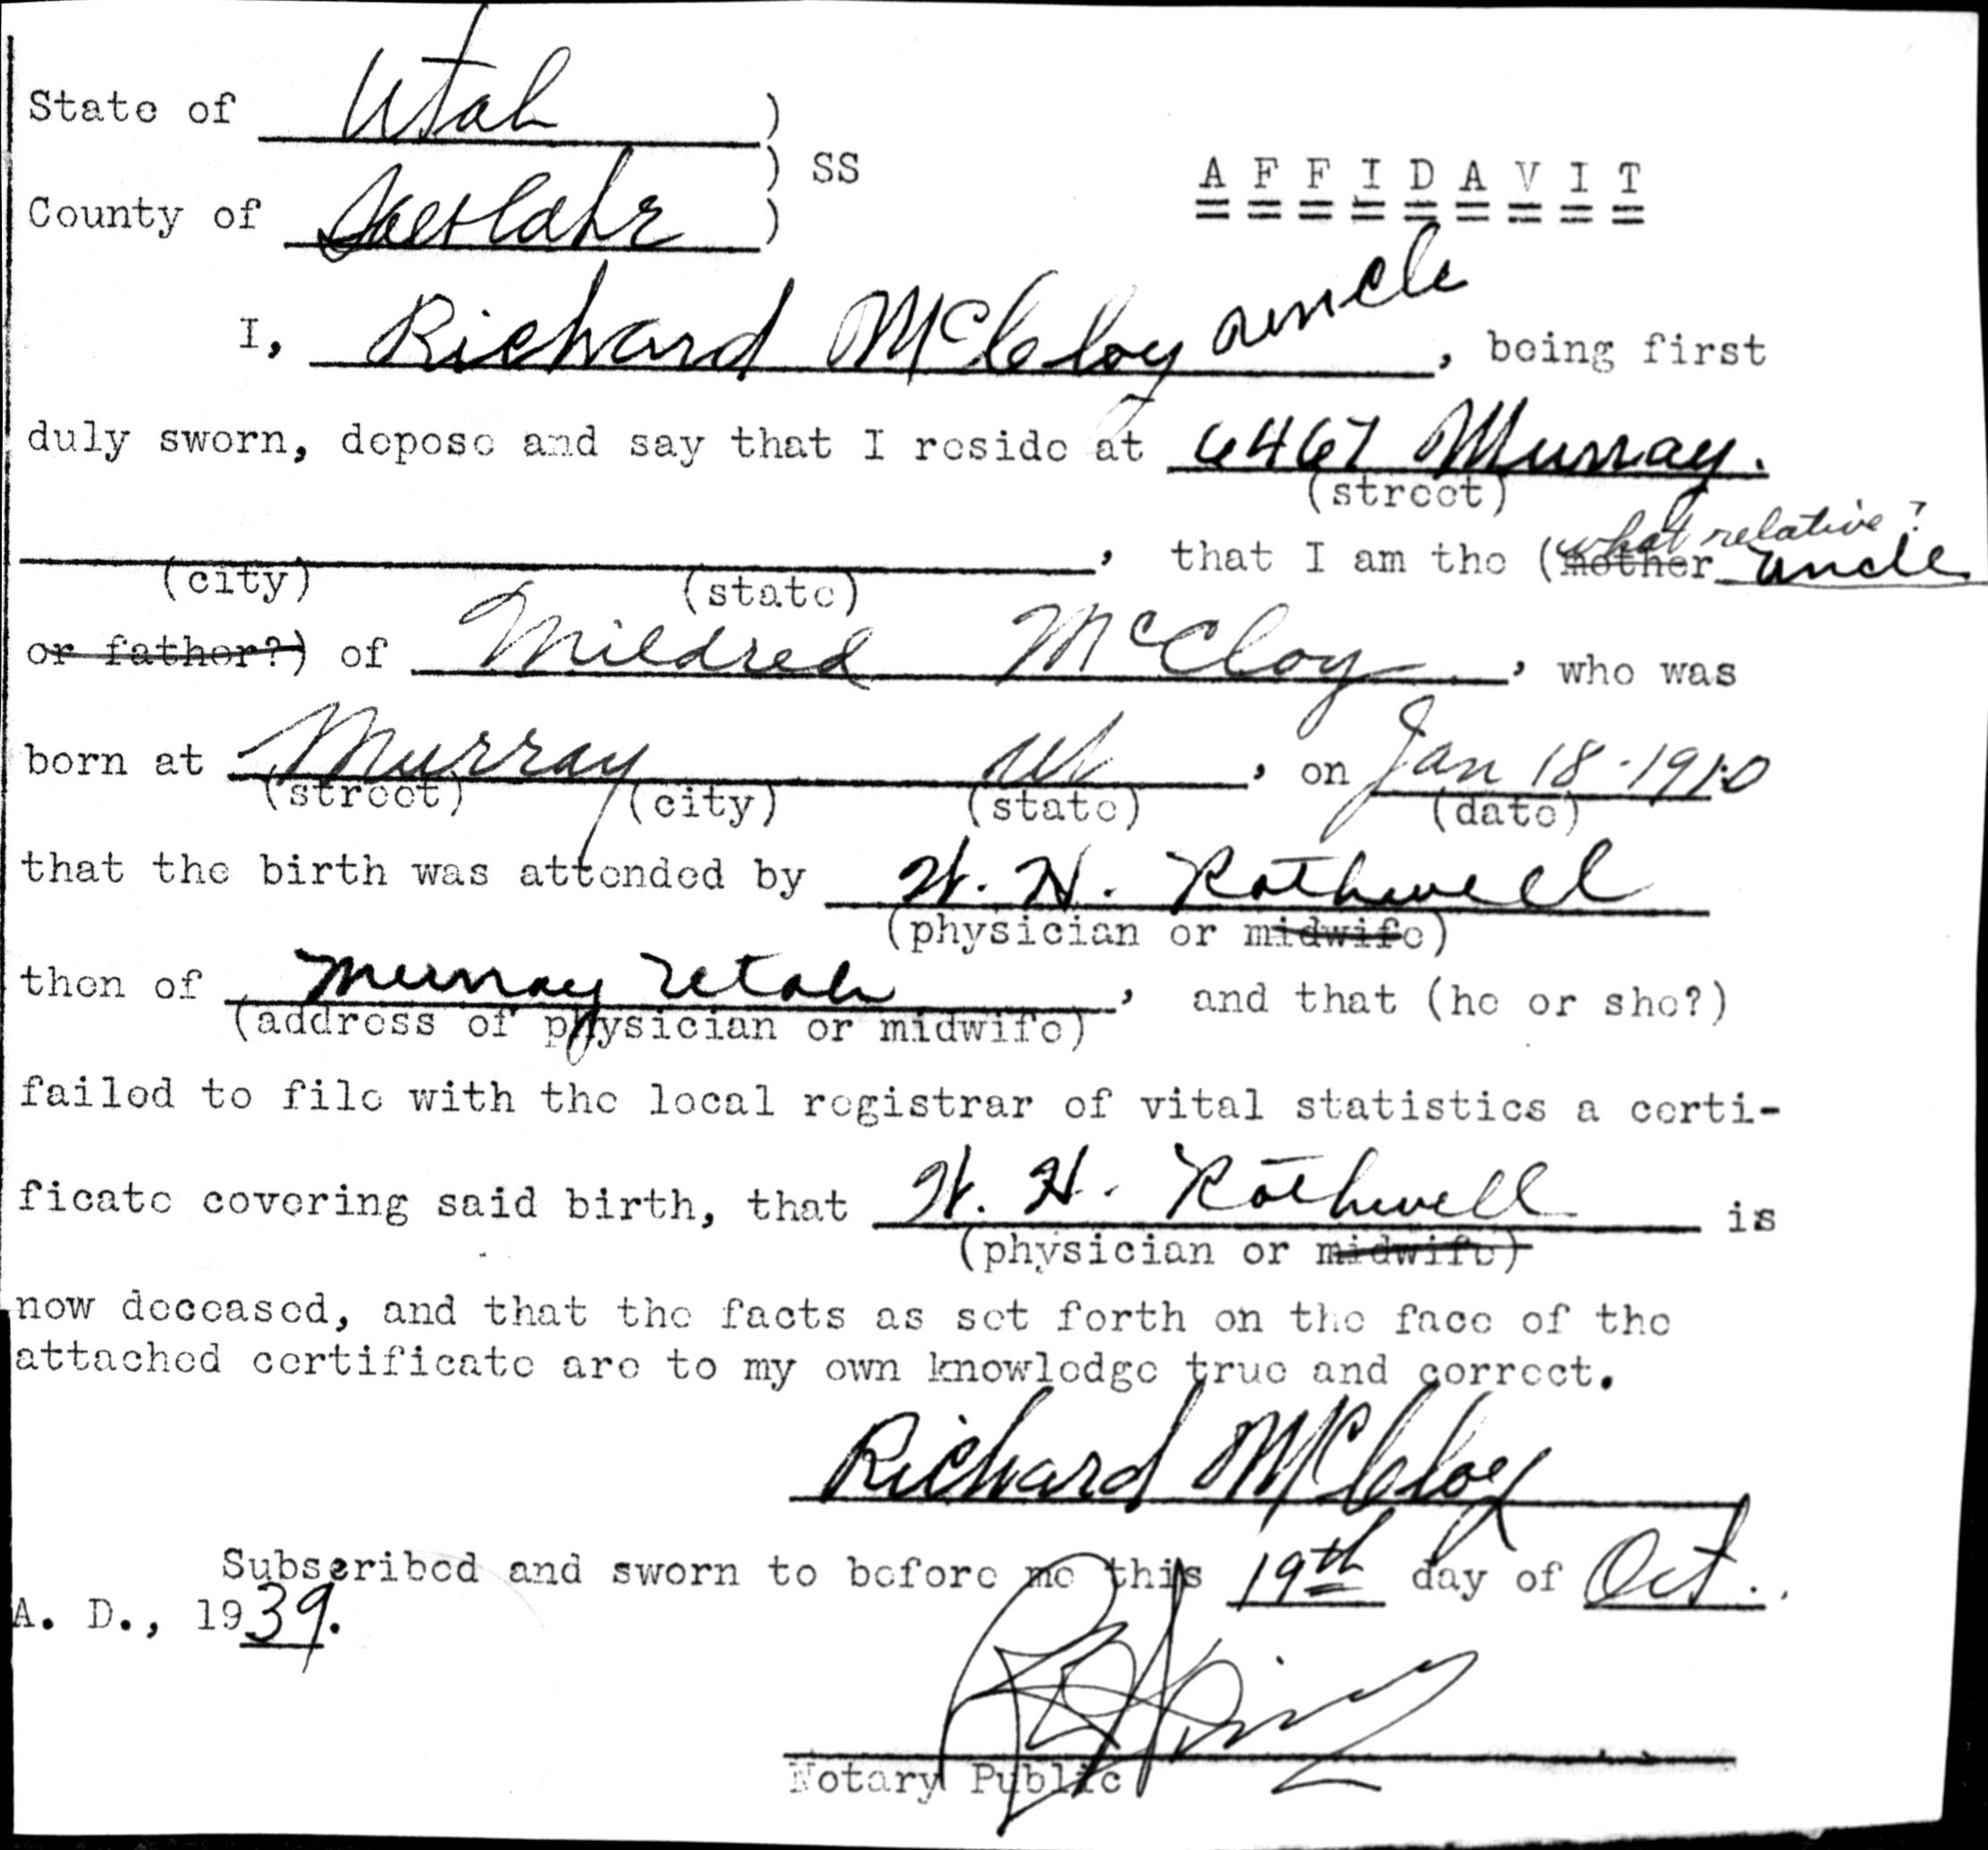 State of Utah )
) SS
A F F I D A V I T
County of Saltlake )
I, Richard McCloy uncle, being first
duly sworn, depose and say that I reside at 6467 Murray.
(street)
what relative?
, that I am the (mother uncle
(city) (state)
or father?) of Mildred McCloy, who was
born at Murray Ut, on Jan 18-1910
(street) (city) (state) (date)
that the birth was attended by W. H. Rothwell
(physician or midwife)
then of Murray Utah, and that (he or she?)
(address of physician or midwife)
failed to file with the local registrar of vital statistics a certi-
ficate covering said birth, that W. H. Rothwell is
(physician or midwife)
now deceased, and that the facts as set forth on the face of the
attached certificate are to my own knowledge true and correct.
Richard McCloy
Subscribed and sworn to before me this 19th day of Oct.
A. D., 1939.
Notary Public